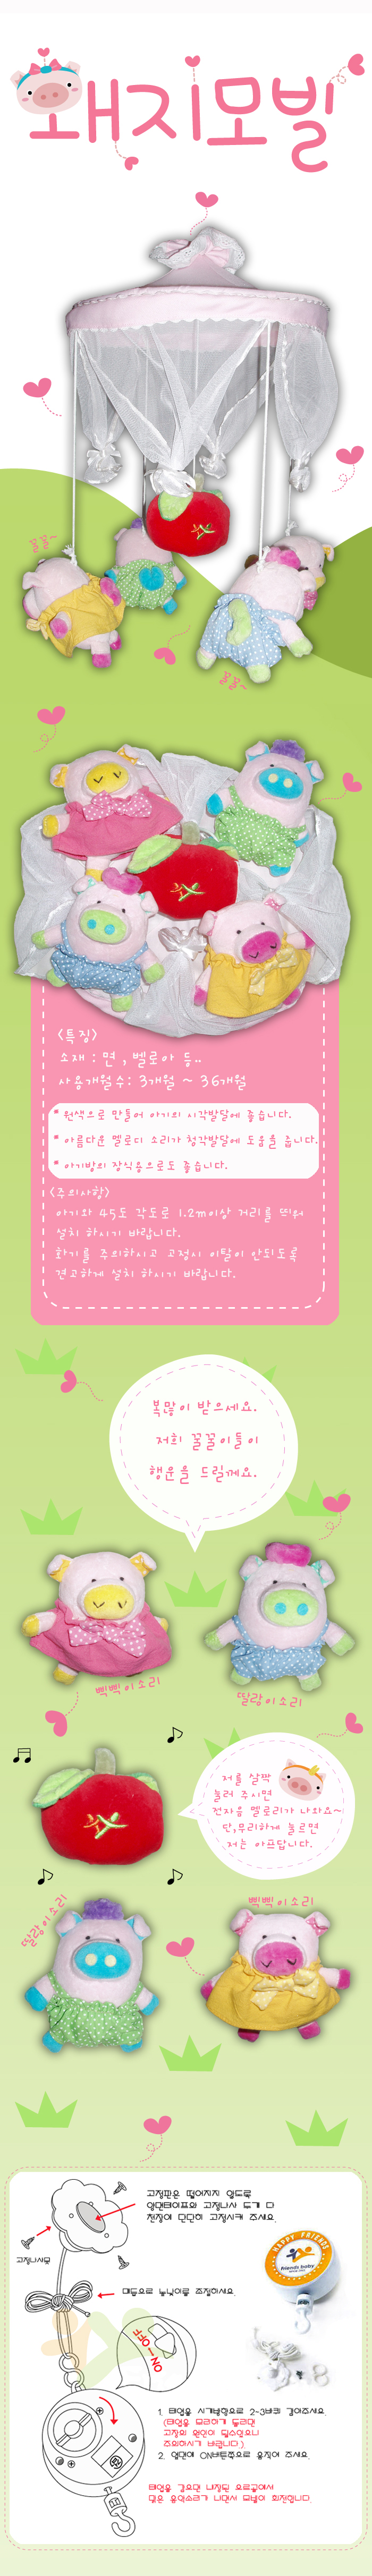 돼지모빌
꿀꿀~
꿀꿀~
<특징>
소재 : 면 , 벨로아 등..
사용개월수: 3개월 ~ 36개월
* 원색으로 만들어 아기의 시각발달에 좋습니다.
* 아름다운 멜로디 소리가 청각발달에 도움을 줍니다.
* 아기방의 장식용으로도 좋습니다.
<주의사항>
아기와 45도 각도로 1.2m이상 거리를 띄워
설치 하시기 바랍니다.
화기를 주의하시고 고정시 이탈이 안되도록
견고하게 설치 하시기 바랍니다.
복많이 받으세요.
저희 꿀꿀이들이
행운을 드릴께요.
삑삑이소리
딸랑이소리
저를 살짝
눌러 주시면
전자음 멜로리가 나와요~
단,무리하게 눌르면
저는 아프답니다.
딸랑이소리
삑삑이소리
고정판은 떨어지지 않도록
양면테이프와 고정나사 두개 다
천장에 단단히 고정시켜 주세요.
고정나사못
매듭으로 높낮이를 조절하세요.
HAPPY FRIENDS
friends baby
ON-OFF
1. 태엽을 시계방향으로 2~3바퀴 감아주세요.
(태엽을 무리하게 돌리면
고장의 원인이 될수있으니
주의하시기 바랍니다.)
2. 옆면에 ON버튼쪽으로 움직여 주세요.
태엽을 감으면 내장된 오르골에서
맑은 음악소리가 나면서 모빌이 회전합니다.